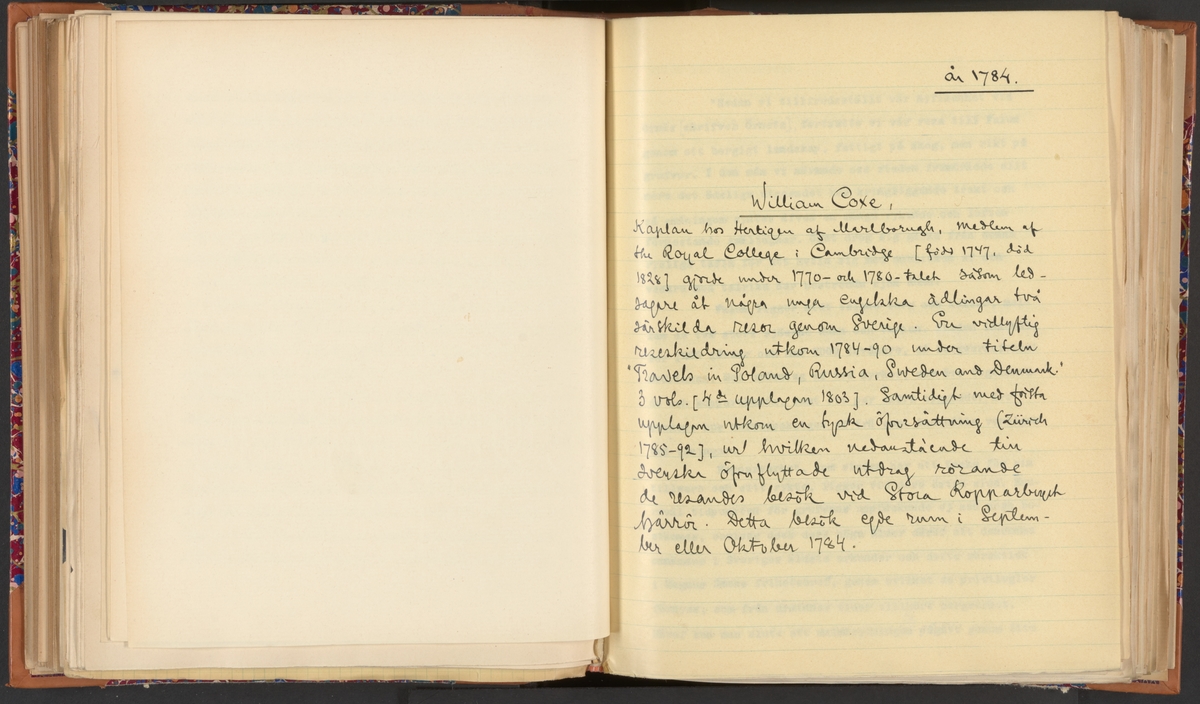 år 1784.
William Coxe,
Kaplan hos Hertigen af Marlborugh, medlem af
the Royal College i Cambridge [född 1747, död
1828] gjorde under 1770- och 1780-talet såsom led-
sagare åt några unga engelska ädlingar två
särskilda resor genom Sverige. En vidlyftig
reseskildring utkom 1784-90 under titeln
"Travels in Poland, Russia, Sweden and Denmark."
3 vols. [4de upplagan 1803]. Samtidigt med första
upplagan utkom en tysk öfversättning (Zürich
1785-92], ur hvilken nedanstående till
svenska öfverflyttade utdrag rörande
de resandes besök vid Stora Kopparbruget
härrör. Detta besök egde rum i Septem-
ber eller Oktober 1784.